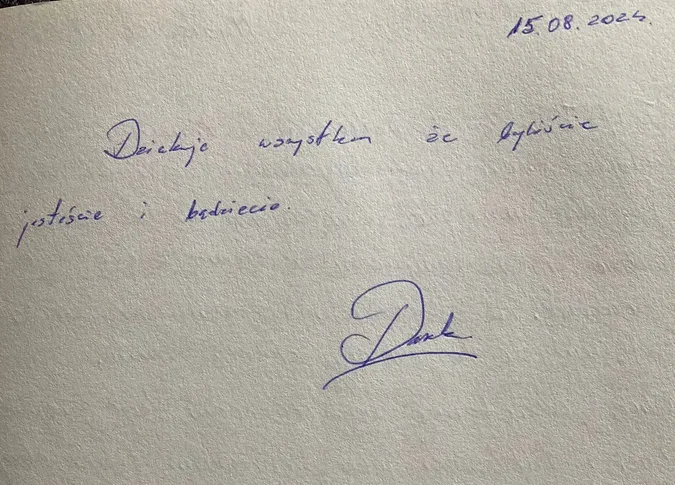 15.08.2024.
Dziękuję wszystkim że byliście
jesteście i będziecie.
Darek